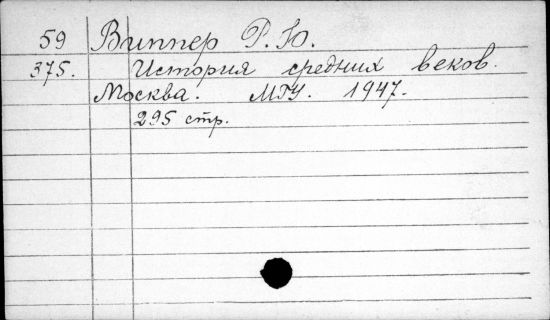 59 Виппер Р. Ю.
375. История средних веков.
Москва. МГУ. 1947.
295 стр.